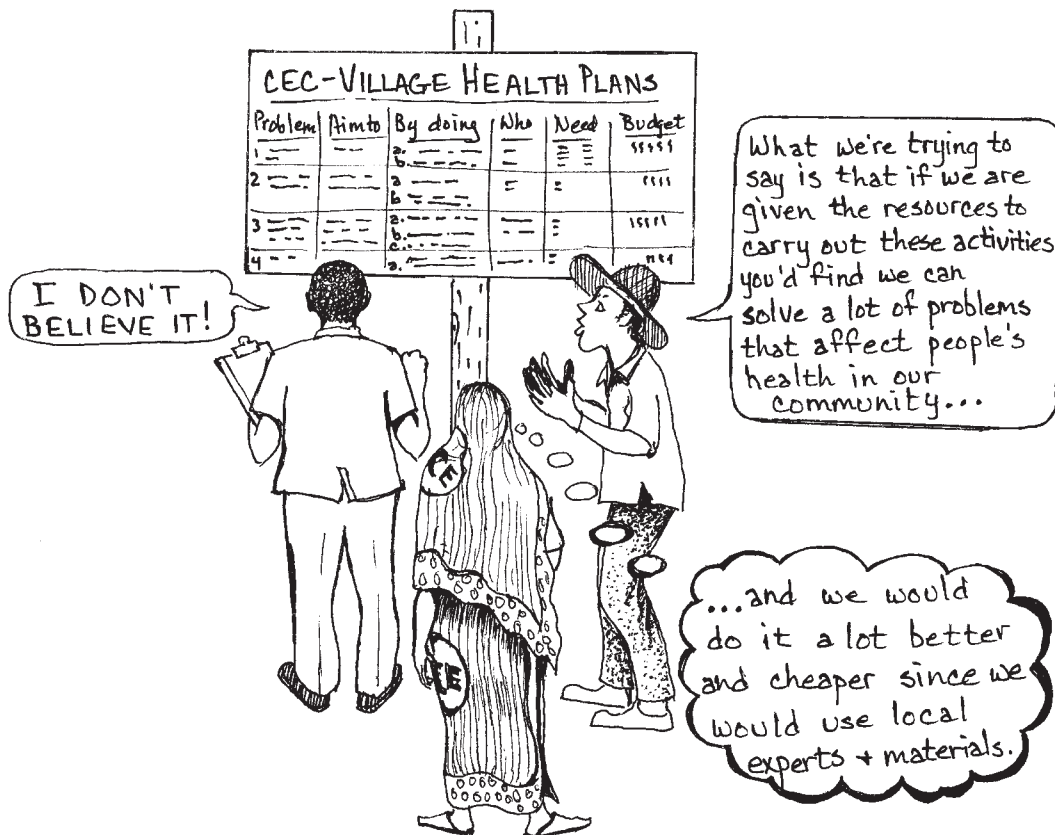 CEC-VILLAGE HEALTH PLANS
Problem Aim to By doing Who Need Budget
1 a.
b.
2 a
b
3 a.
b.
c.
4 a.
I DON'T
BELIEVE IT!
What we're trying to
say is that if we are
given the resources to
carry out these activities
you'd find we can
solve a lot of problems
that affect people's
health in our
community...
CE
...and we would
do it a lot better
and cheaper since we
would use local
experts + materials.